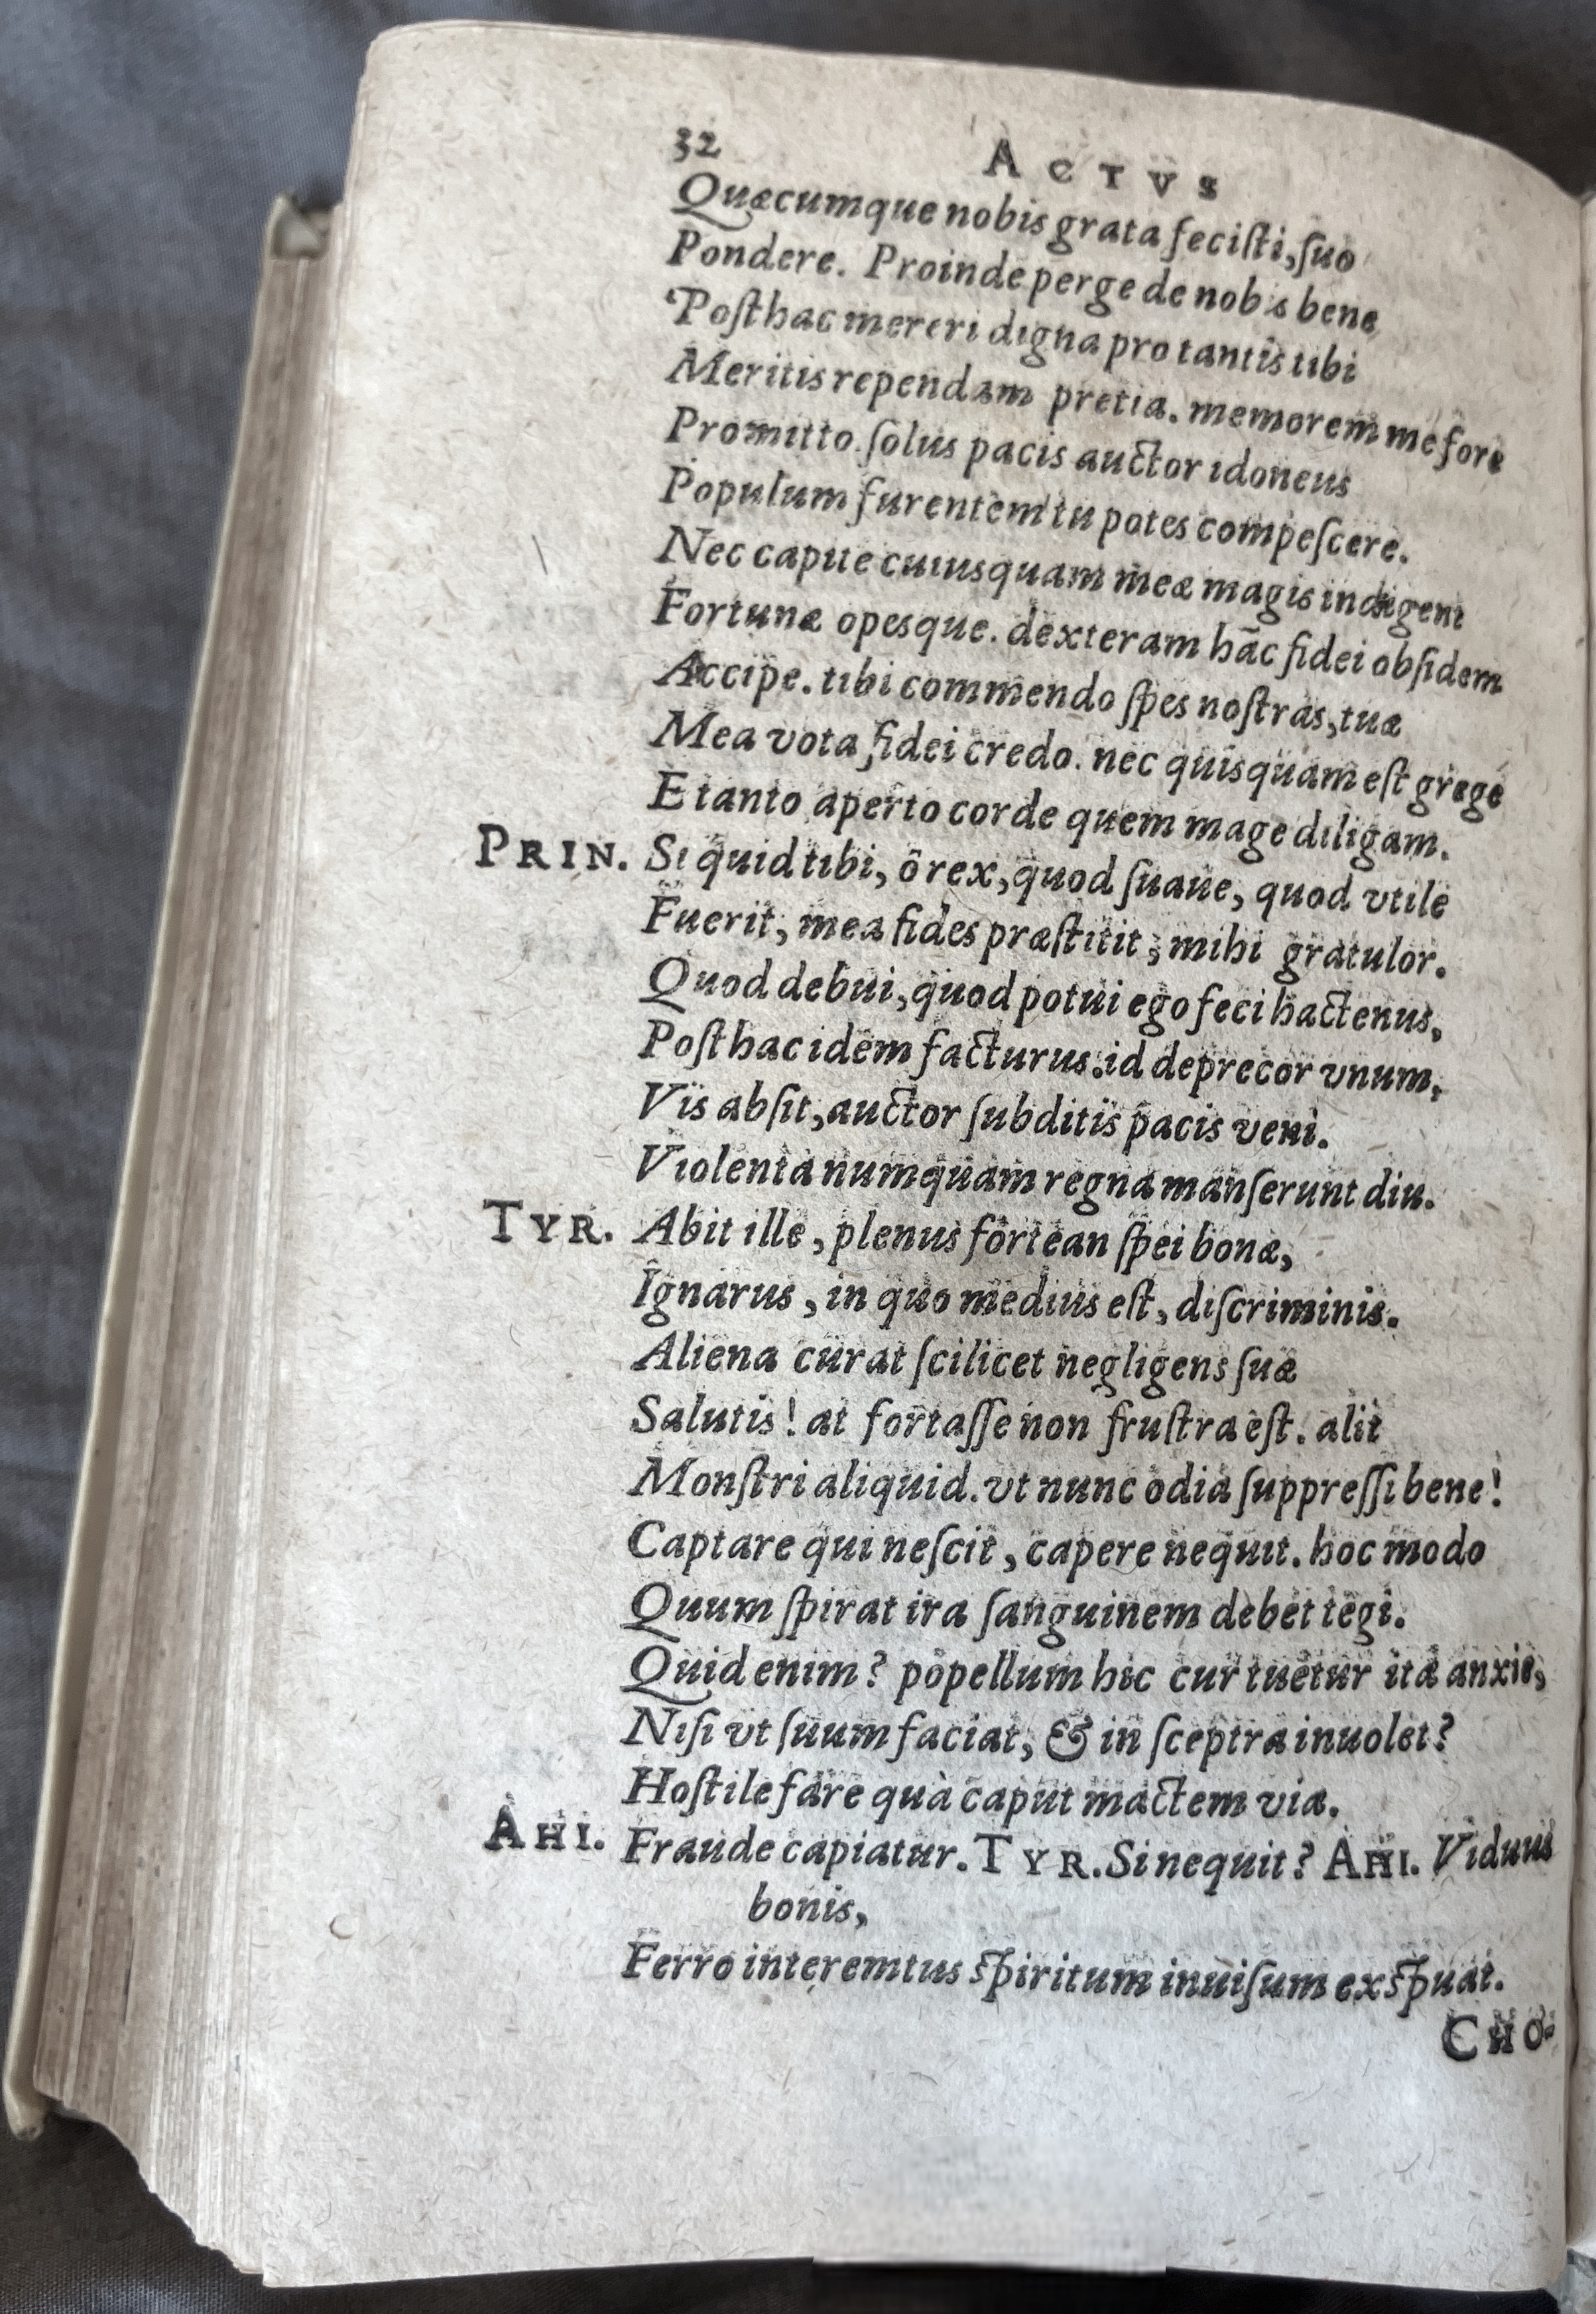 32 ACTVS
Quæcumque nobis grata feciſti, ſuo
Pondere. Proinde perge de nobis bene
Poſthac mereri digna pro tantis tibi
Meritis rependam pretia. memorem me fore
Promitto. ſolus pacis auctor idoneus
Populum furentem tu potes compeſcere.
Nec capite cuiusquam meæ magis indigent
Fortunæ opesque. dexteram hãc fidei obſidem
Accipe. tibi commendo ſpes noſtras, tuæ
Mea vota fidei credo. nec quisquam eſt grege
E tanto aperto corde quem mage diligam.
PRIN. Si quid tibi, ô rex, quod ſuaue, quod vtile
Fuerit, mea fides præſtitit, mihi gratulor.
Quod debui, quod potui ego feci hactenus,
Poſthac idem facturus. id deprecor vnum,
Vis abſit, auctor ſubditis pacis veni.
Violenta numquam regna manſerunt diu.
TYR. Abit ille, plenus fortean ſpei bonæ,
Ignarus, in quo medius eſt, diſcriminis.
Aliena curat ſcilicet negligens ſuæ
Salutis! at fortaſſe non fruſtra eſt. alit
Monſtri aliquid. vt nunc odia ſuppreſſi bene!
Captare qui neſcit, capere nequit. hoc modo
Quum ſpirat ira ſanguinem debet tegi.
Quid enim? popellum hic cur tuetur ita anxie,
Niſi vt ſuum faciat, & in ſceptra inuolet?
Hoſtile fare quà caput mactem via.
AHI. Fraude capiatur. TYR. Si nequit? AHI. Viduus
bonis,
Ferro interemtus ſpiritum inuiſum exſpuat.
CHO-